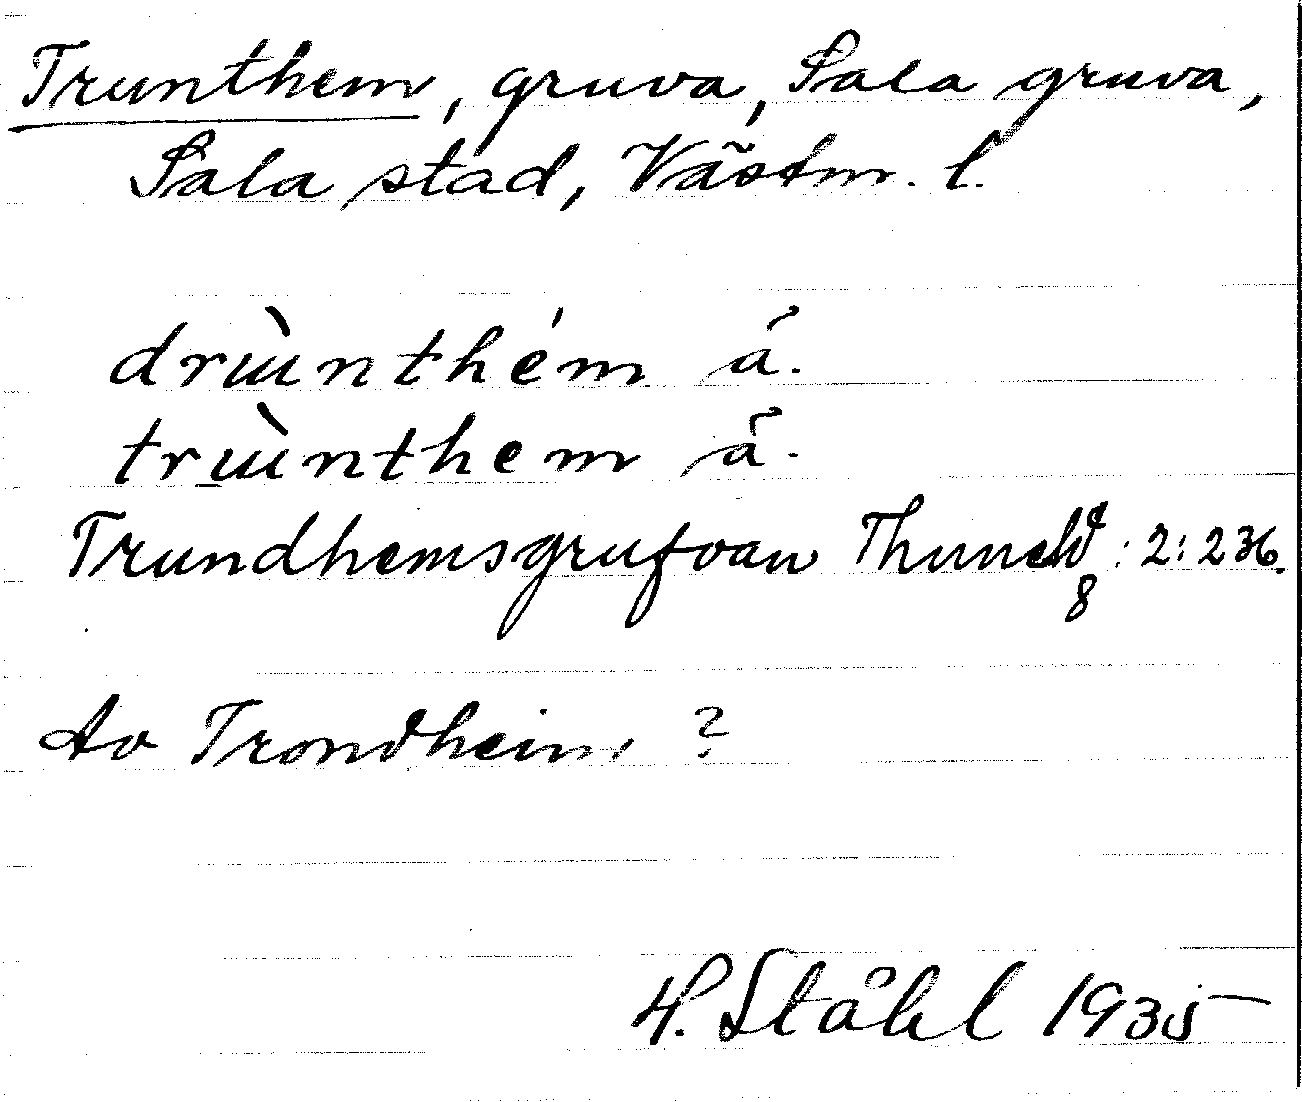 Trunthem, gruva, Sala gruva,
Sala stad, Västm. l.
drɯ̀nthém å.
trɯ̀nthem å.
Trundhemsgrufvan Thuneld 8: 2: 236.
Av Trondheim ?
H. Ståhl 1935